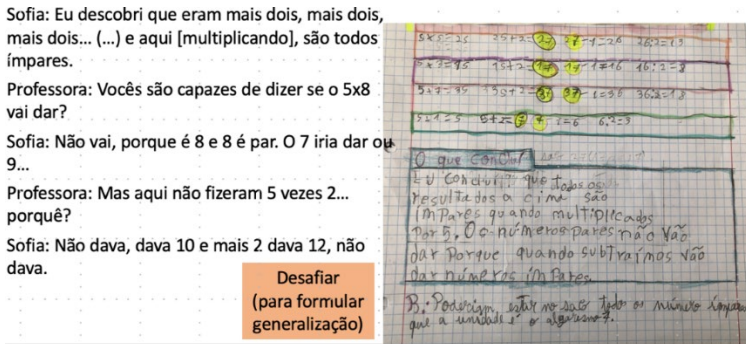 Sofia: Eu descobri que eram mais dois, mais dois,
mais dois... (...) e aqui [multiplicando], são todos
ímpares.
Professora: Vocês são capazes de dizer se o 5x8
vai dar?
Sofia: Não vai, porque é 8 e 8 é par. O 7 iria dar ou
9...
Professora: Mas aqui não fizeram 5 vezes 2...
porquê?
Sofia: Não dava, dava 10 e mais 2 dava 12, não
dava.
Desafiar
(para formular
generalização)
5x5=25 25+2=27 27-1=26 26:2=13
5x3=15 15+2=17 17-1=16 16:2=8
5x7=35 35+2=37 37-1=36 36:2=18
5x1=5 5+2=7 7-1=6 6:2=3
O que concluí
Eu concluí que todos os
resultados a cima são
ímpares quando multiplicados
por 5. Os números pares não vão
dar porque quando subtraímos vão
dar números ímpares.
B. Poderiam estar no saco todos os números ímpares
que a unidade é o algarismo 7.